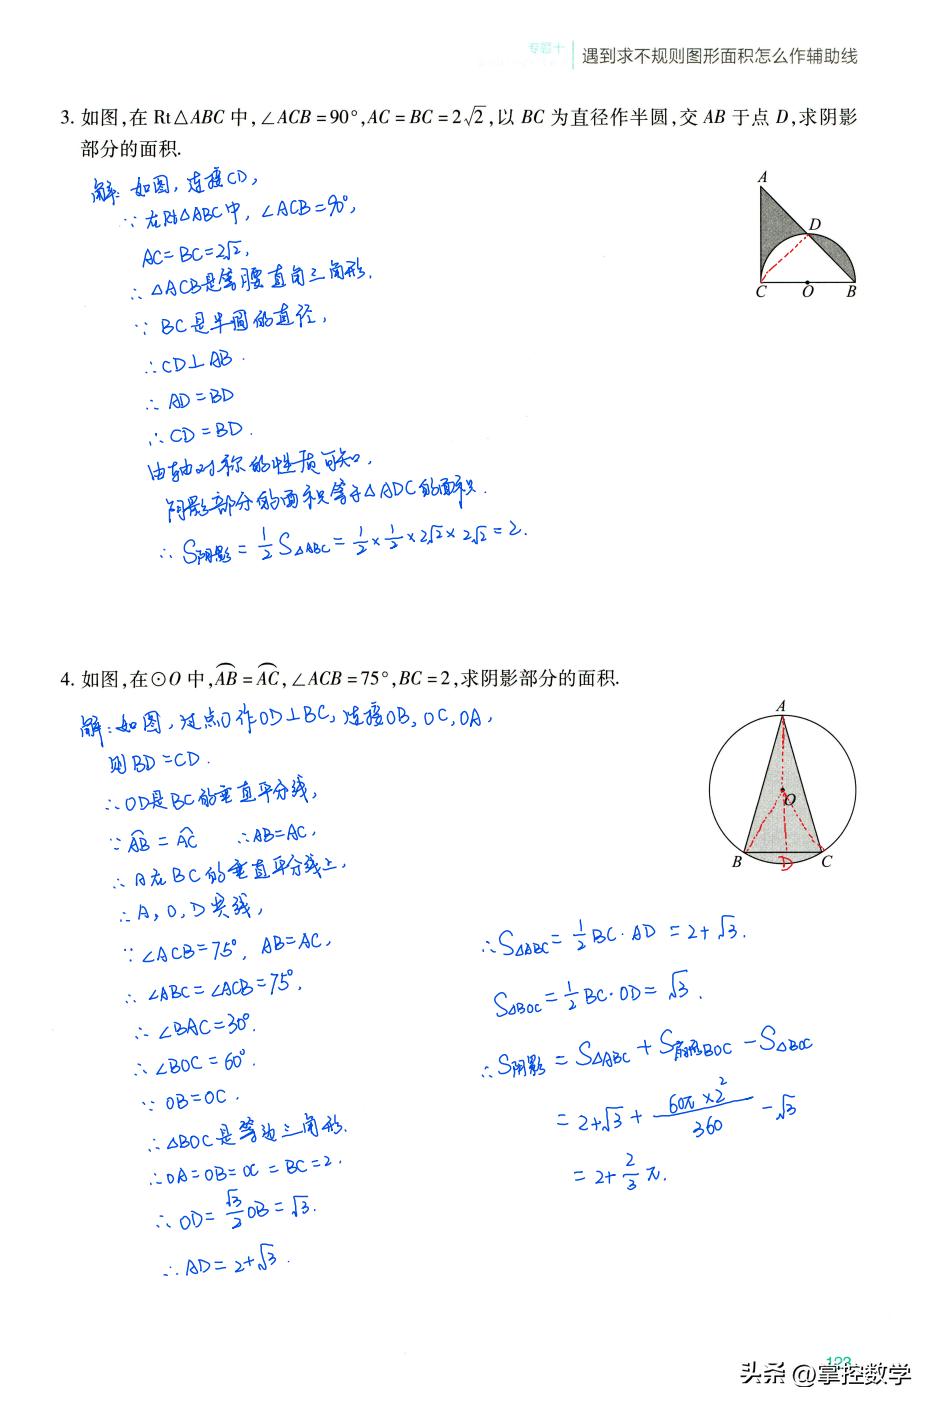 专题十 遇到求不规则图形面积怎么作辅助线
3. 如图,在 Rt△ABC 中,∠ACB=90°,AC=BC=2√2,以 BC 为直径作半圆,交 AB 于点 D,求阴影
部分的面积.
解: 如图, 连接CD,
∵ 在Rt△ABC中, ∠ACB=90°,
AC=BC=2√2,
∴ △ACB是等腰直角三角形.
∵ BC是半圆的直径,
∴CD⊥AB.
∴ AD=BD
∴ CD=BD.
由轴对称的性质可知,
阴影部分的面积等于△ADC的面积.
∴ S阴影 = 1/2 S△ABC = 1/2 × 1/2 × 2√2 × 2√2 = 2.
A
D
C O B
4. 如图,在⊙O 中,AB=AC,∠ACB=75°,BC=2,求阴影部分的面积.
解: 如图, 过点O作OD⊥BC, 连接OB, OC, OA,
则 BD=CD.
∴OD是BC的垂直平分线,
∵ AB = AC ∴AB=AC.
∴ A在BC的垂直平分线上.
∴ A, O, D 共线,
∵ ∠ACB=75°, AB=AC,
∴ ∠ABC=∠ACB=75°.
∴ ∠BAC=30°.
∴ ∠BOC=60°.
∵ OB=OC.
∴ △BOC是等边三角形.
∴ OA=OB=OC=BC=2.
∴ OD= √3/2 OB=√3.
∴ AD= 2+√3.
A
O
B D C
∴ S△ABC = 1/2 BC·AD = 2+√3.
S△BOC = 1/2 BC·OD= √3.
∴ S阴影 = S△ABC + S扇形BOC − S△BOC
= 2+√3 + 60π×2²/360 − √3
= 2+ 2/3 π.
123
头条 @掌控数学